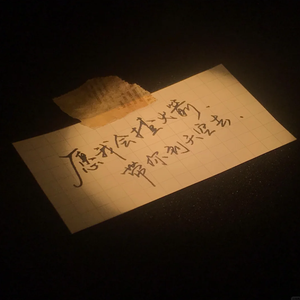 愿我会揸火箭.
帶你到天空去.